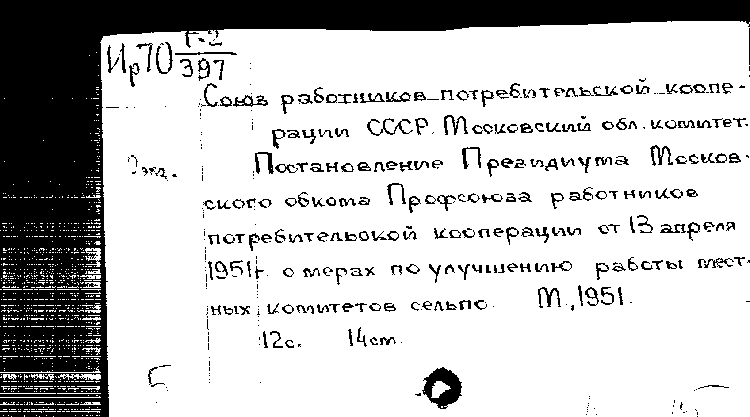 Ир70 Г-2/397
Союз работников потребительской коопе-
рации СССР. Московский обл. комитет.
2 экз. Постановление Президиума Москов-
ского обкома Профсоюза работников
потребительской кооперации от 13 апреля
1951 г. о мерах по улучшению работы мест-
ных комитетов сельпо. М., 1951.
12с. 14 см.
5